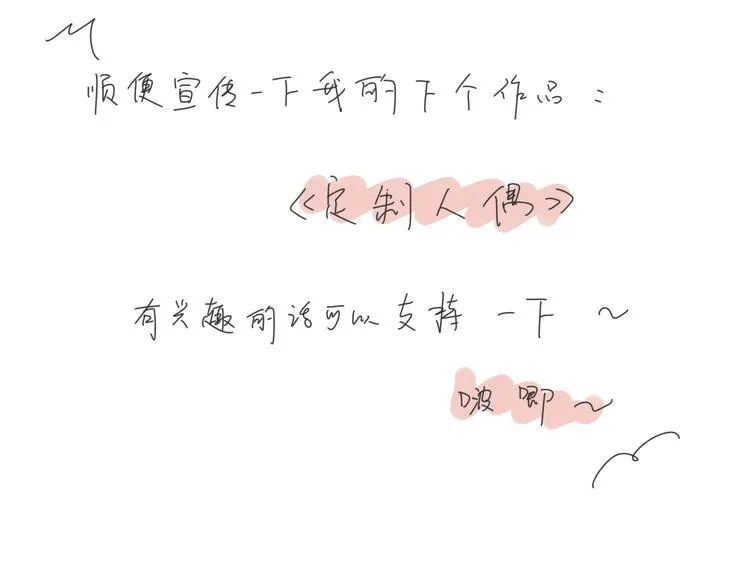 顺便宣传一下我的下个作品:
《定制人偶》
有兴趣的话可以支持一下~
啵唧~